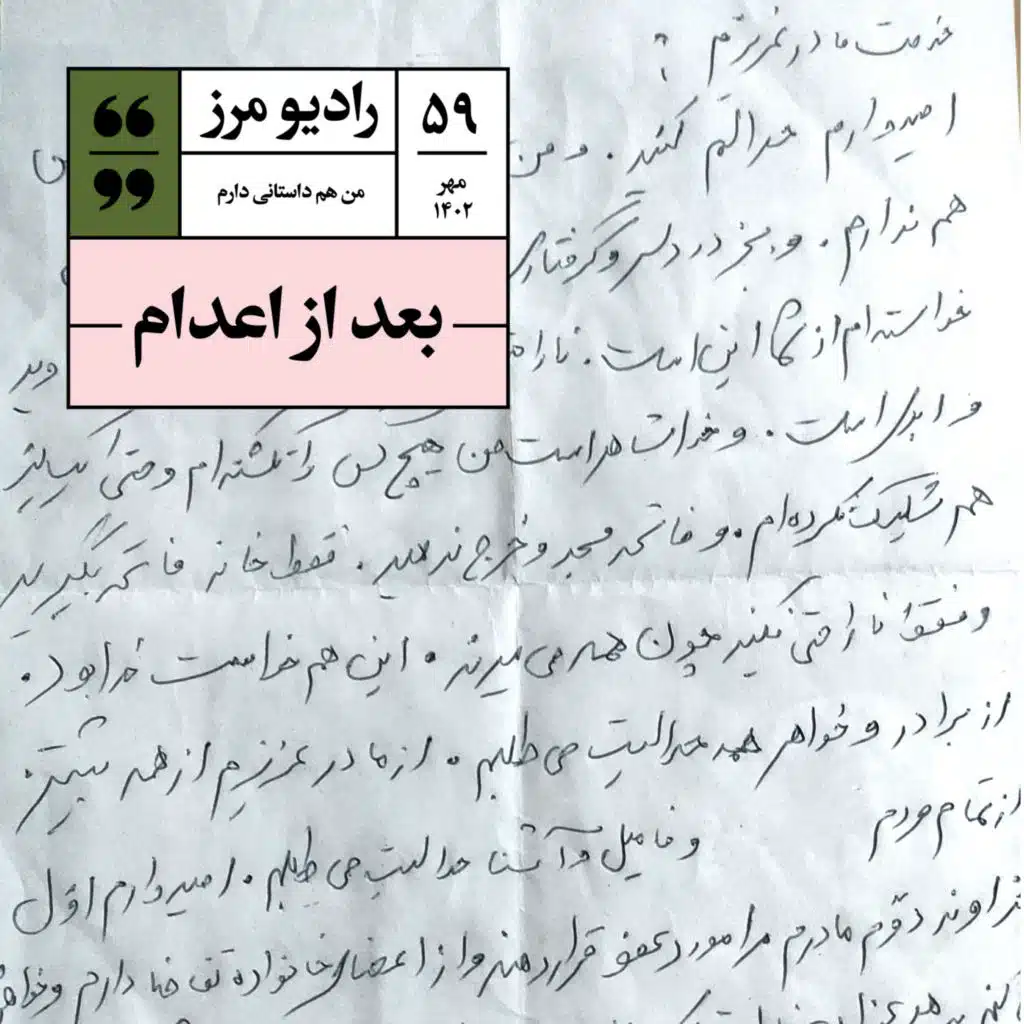 خدمت مادر عزیزم ؟
۵۹
رادیو مرز
مهر
۱۴۰۲
من هم داستانی دارم
بعد از اعدام
امیدوارم حلالم کنید . و من
هم ندارم . و بجز دردسر و گرفتاری
خواسته ام از شما این است .
و ابدی است . و خدا شاهد است من هیچ کس را نکشته ام و حتی
هم شلیک نکرده ام . و فاتحه مسجد و خرج ندهید . فقط خانه فاتحه بگیرید
و فقط ناراحتی نکنید چون همه می میرند . این هم خواست خدا بود .
از برادر و خواهر همه حلالیت می طلبم . از مادر عزیزم از همه بیشتر .
از تمام مردم و فامیل و آشنا حلالیت می طلبم . امیدوارم اول
خداوند دوم مادرم مرا مورد عفو قرار دهند و از اعضای خانواده تقاضا دارم